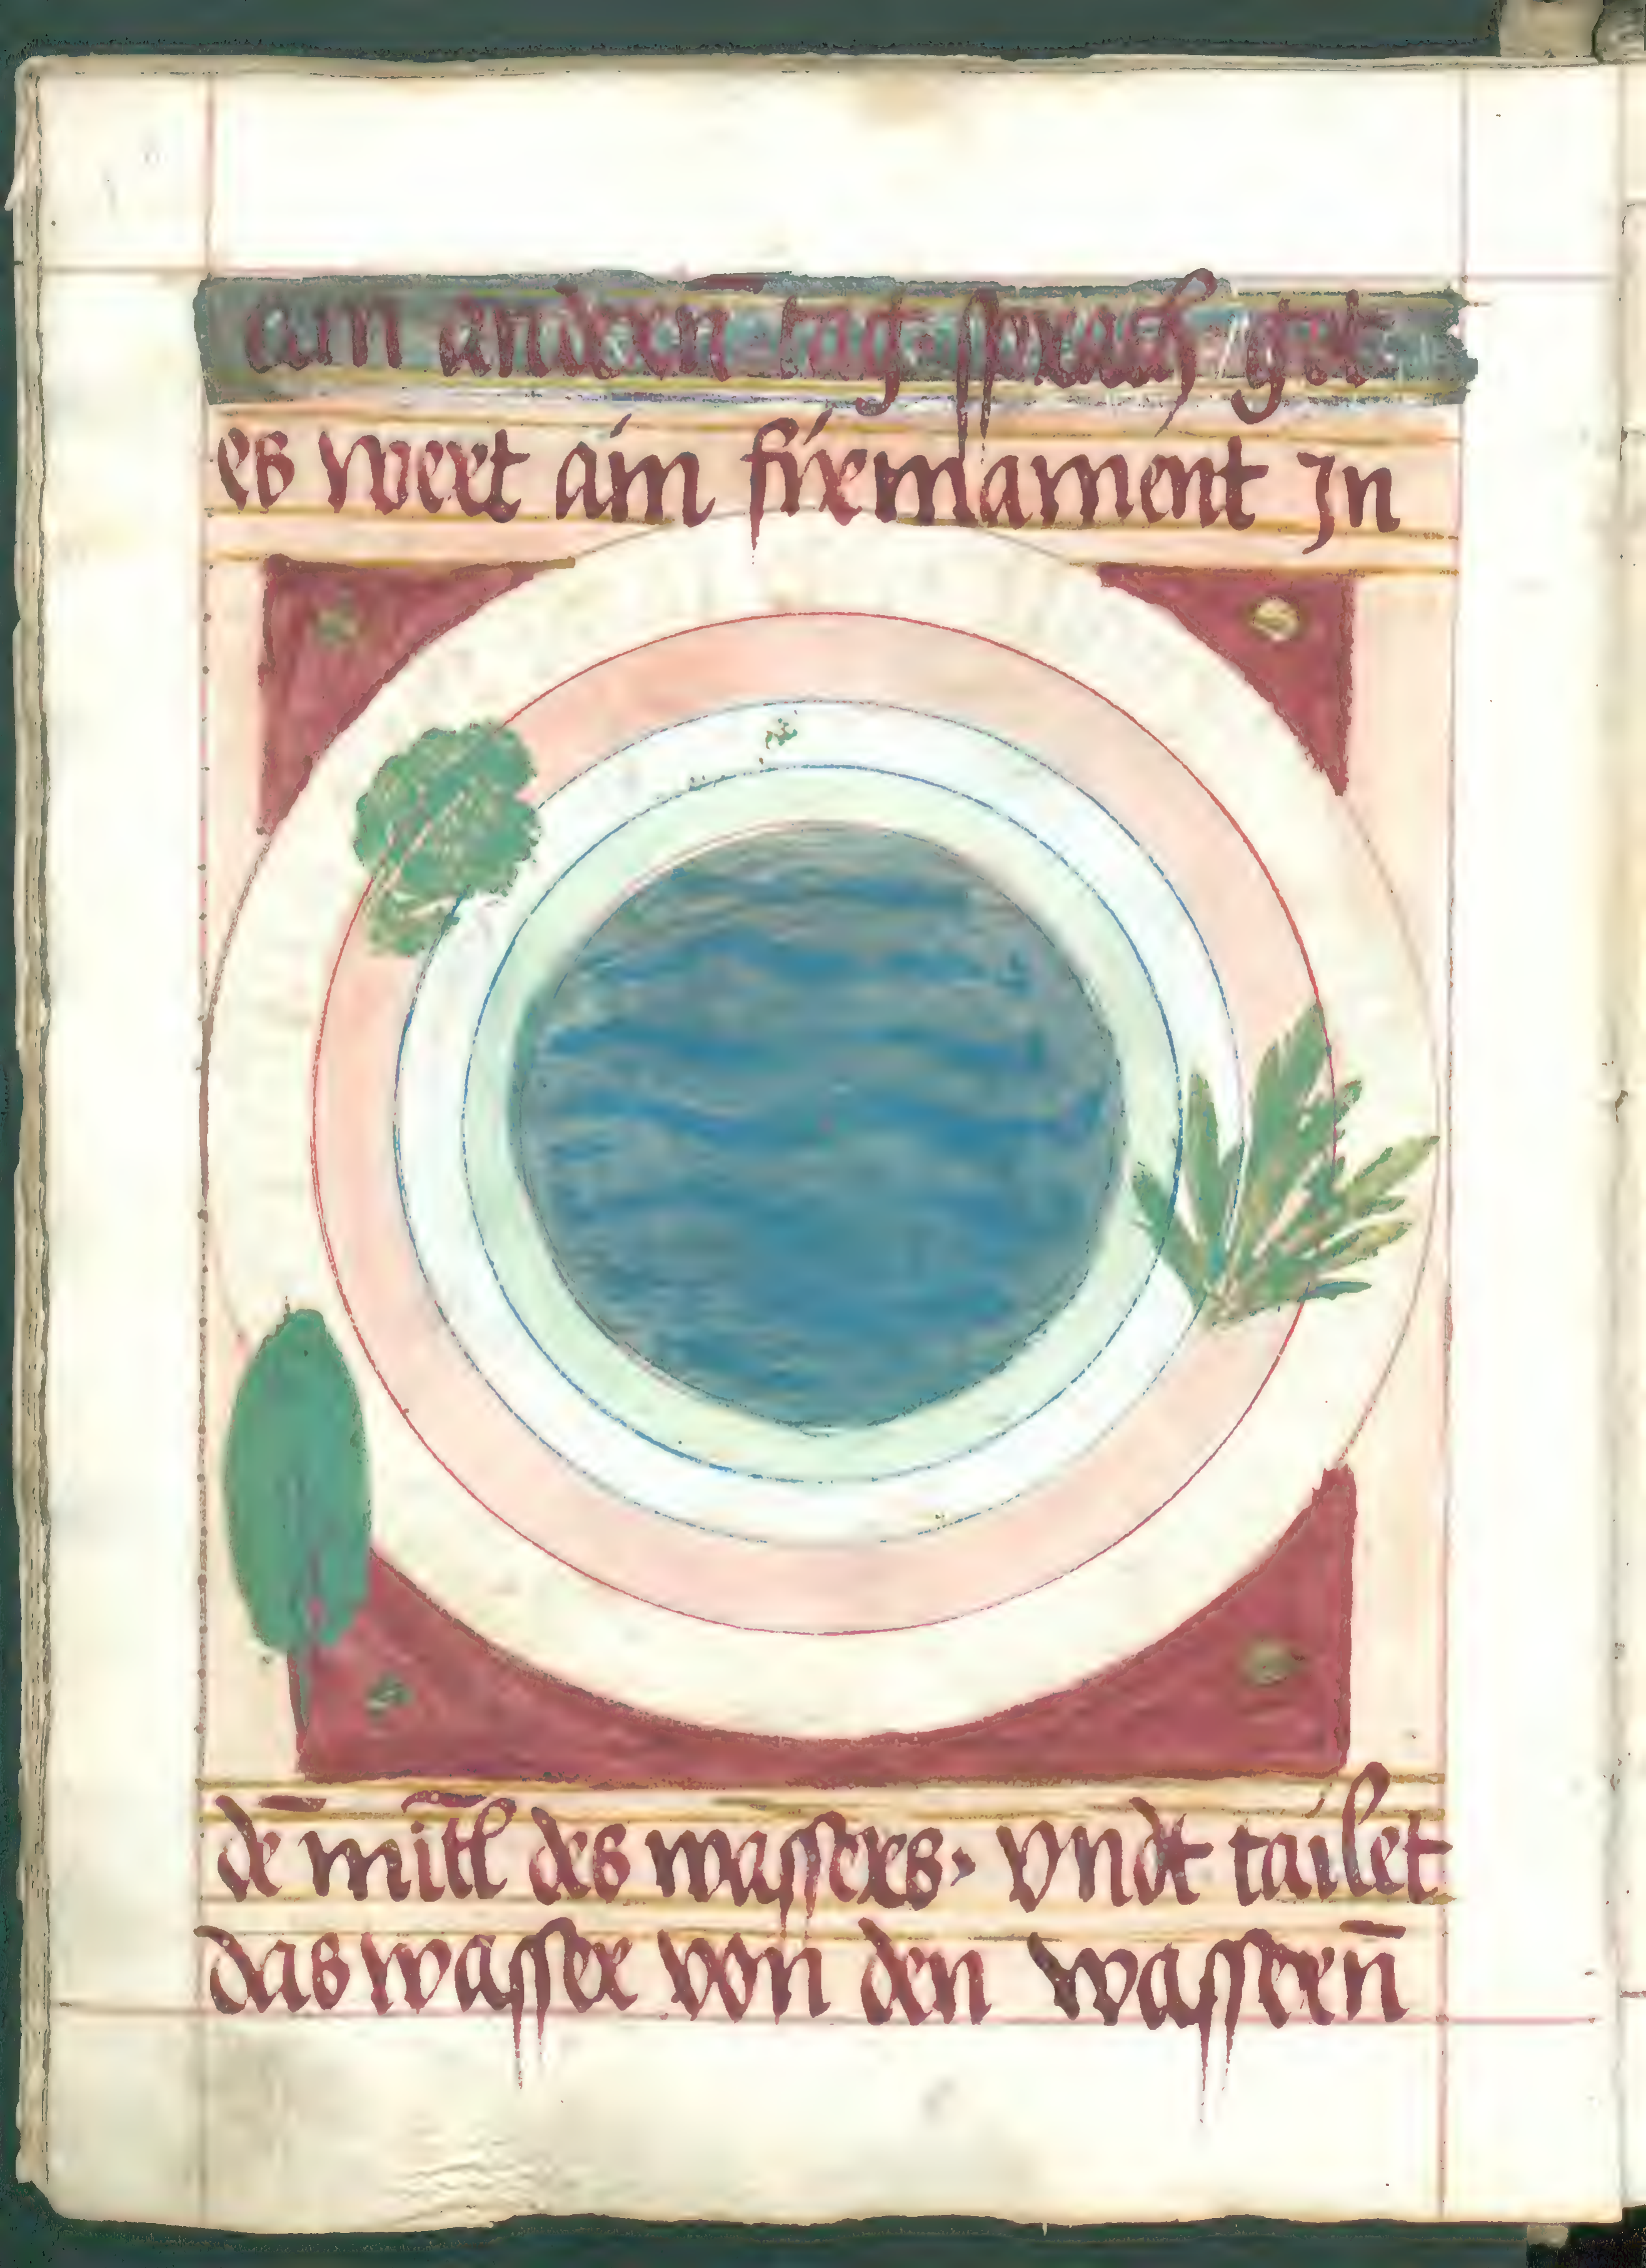 am andern tag sprach got
es wert ain firmament Jn
dē mitl̄ des wassers, vndt tailet
das wasser von den wassern̄